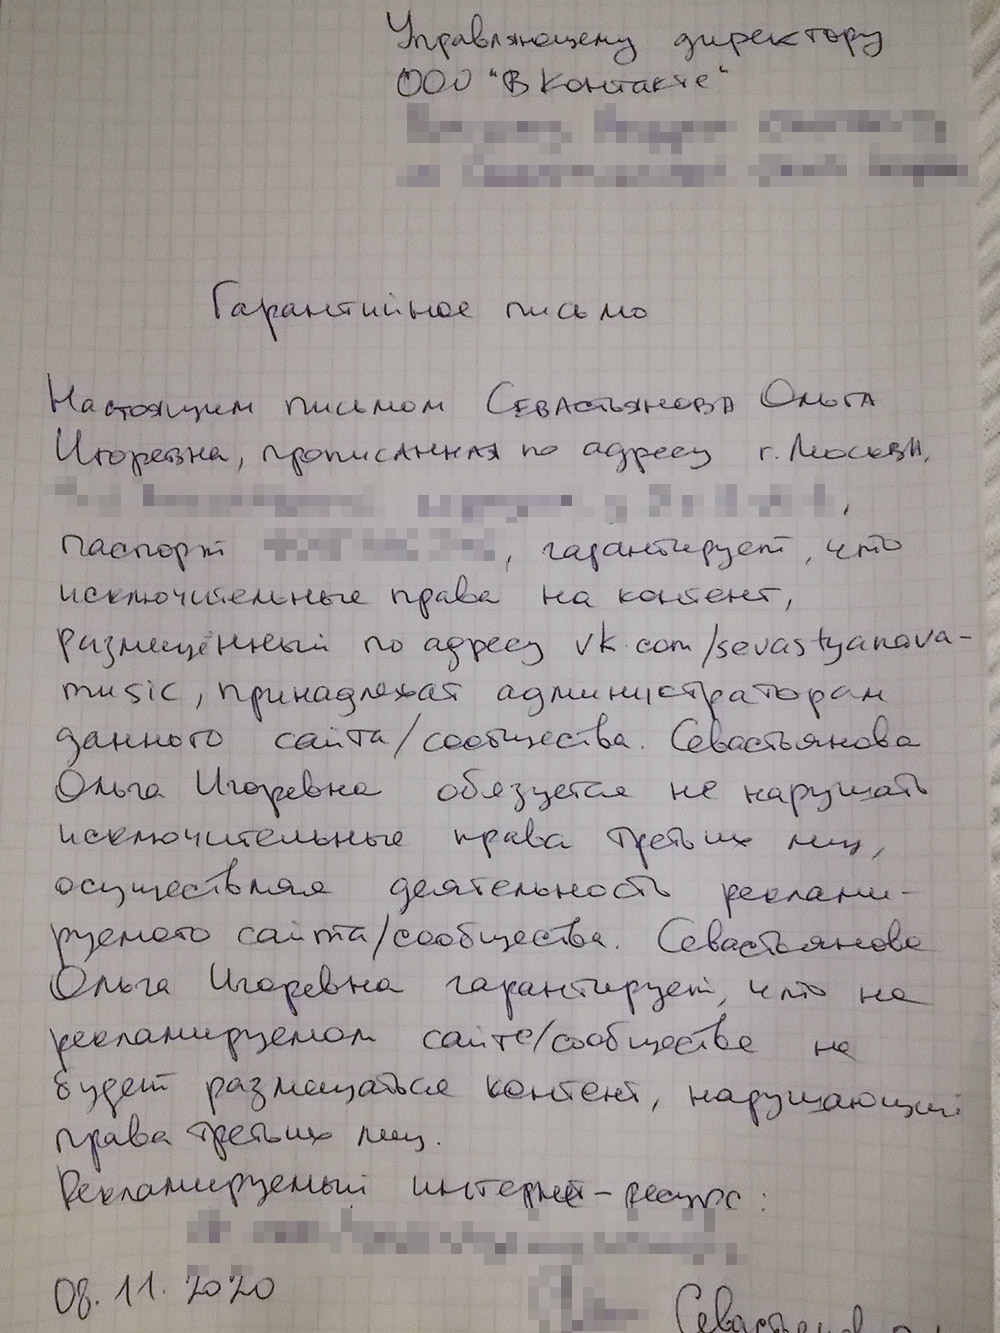 Управляющему директору
ООО "ВКонтакте"
Гарантийное письмо
Настоящим письмом Севастьянова Ольга
Игоревна, прописанная по адресу г. Москва,
,
паспорт , гарантирует, что
исключительные права на контент,
размещённый по адресу vk.com/sevastyanova-
music, принадлежат администраторам
данного сайта/сообщества. Севастьянова
Ольга Игоревна обязуется не нарушать
исключительные права третьих лиц,
осуществляя деятельность реклами-
руемого сайта/сообщества. Севастьянова
Ольга Игоревна гарантирует, что на
рекламируемом сайте/сообществе не
будет размещаться контент, нарушающий
права третьих лиц.
Рекламируемый интернет-ресурс:
08.11.2020